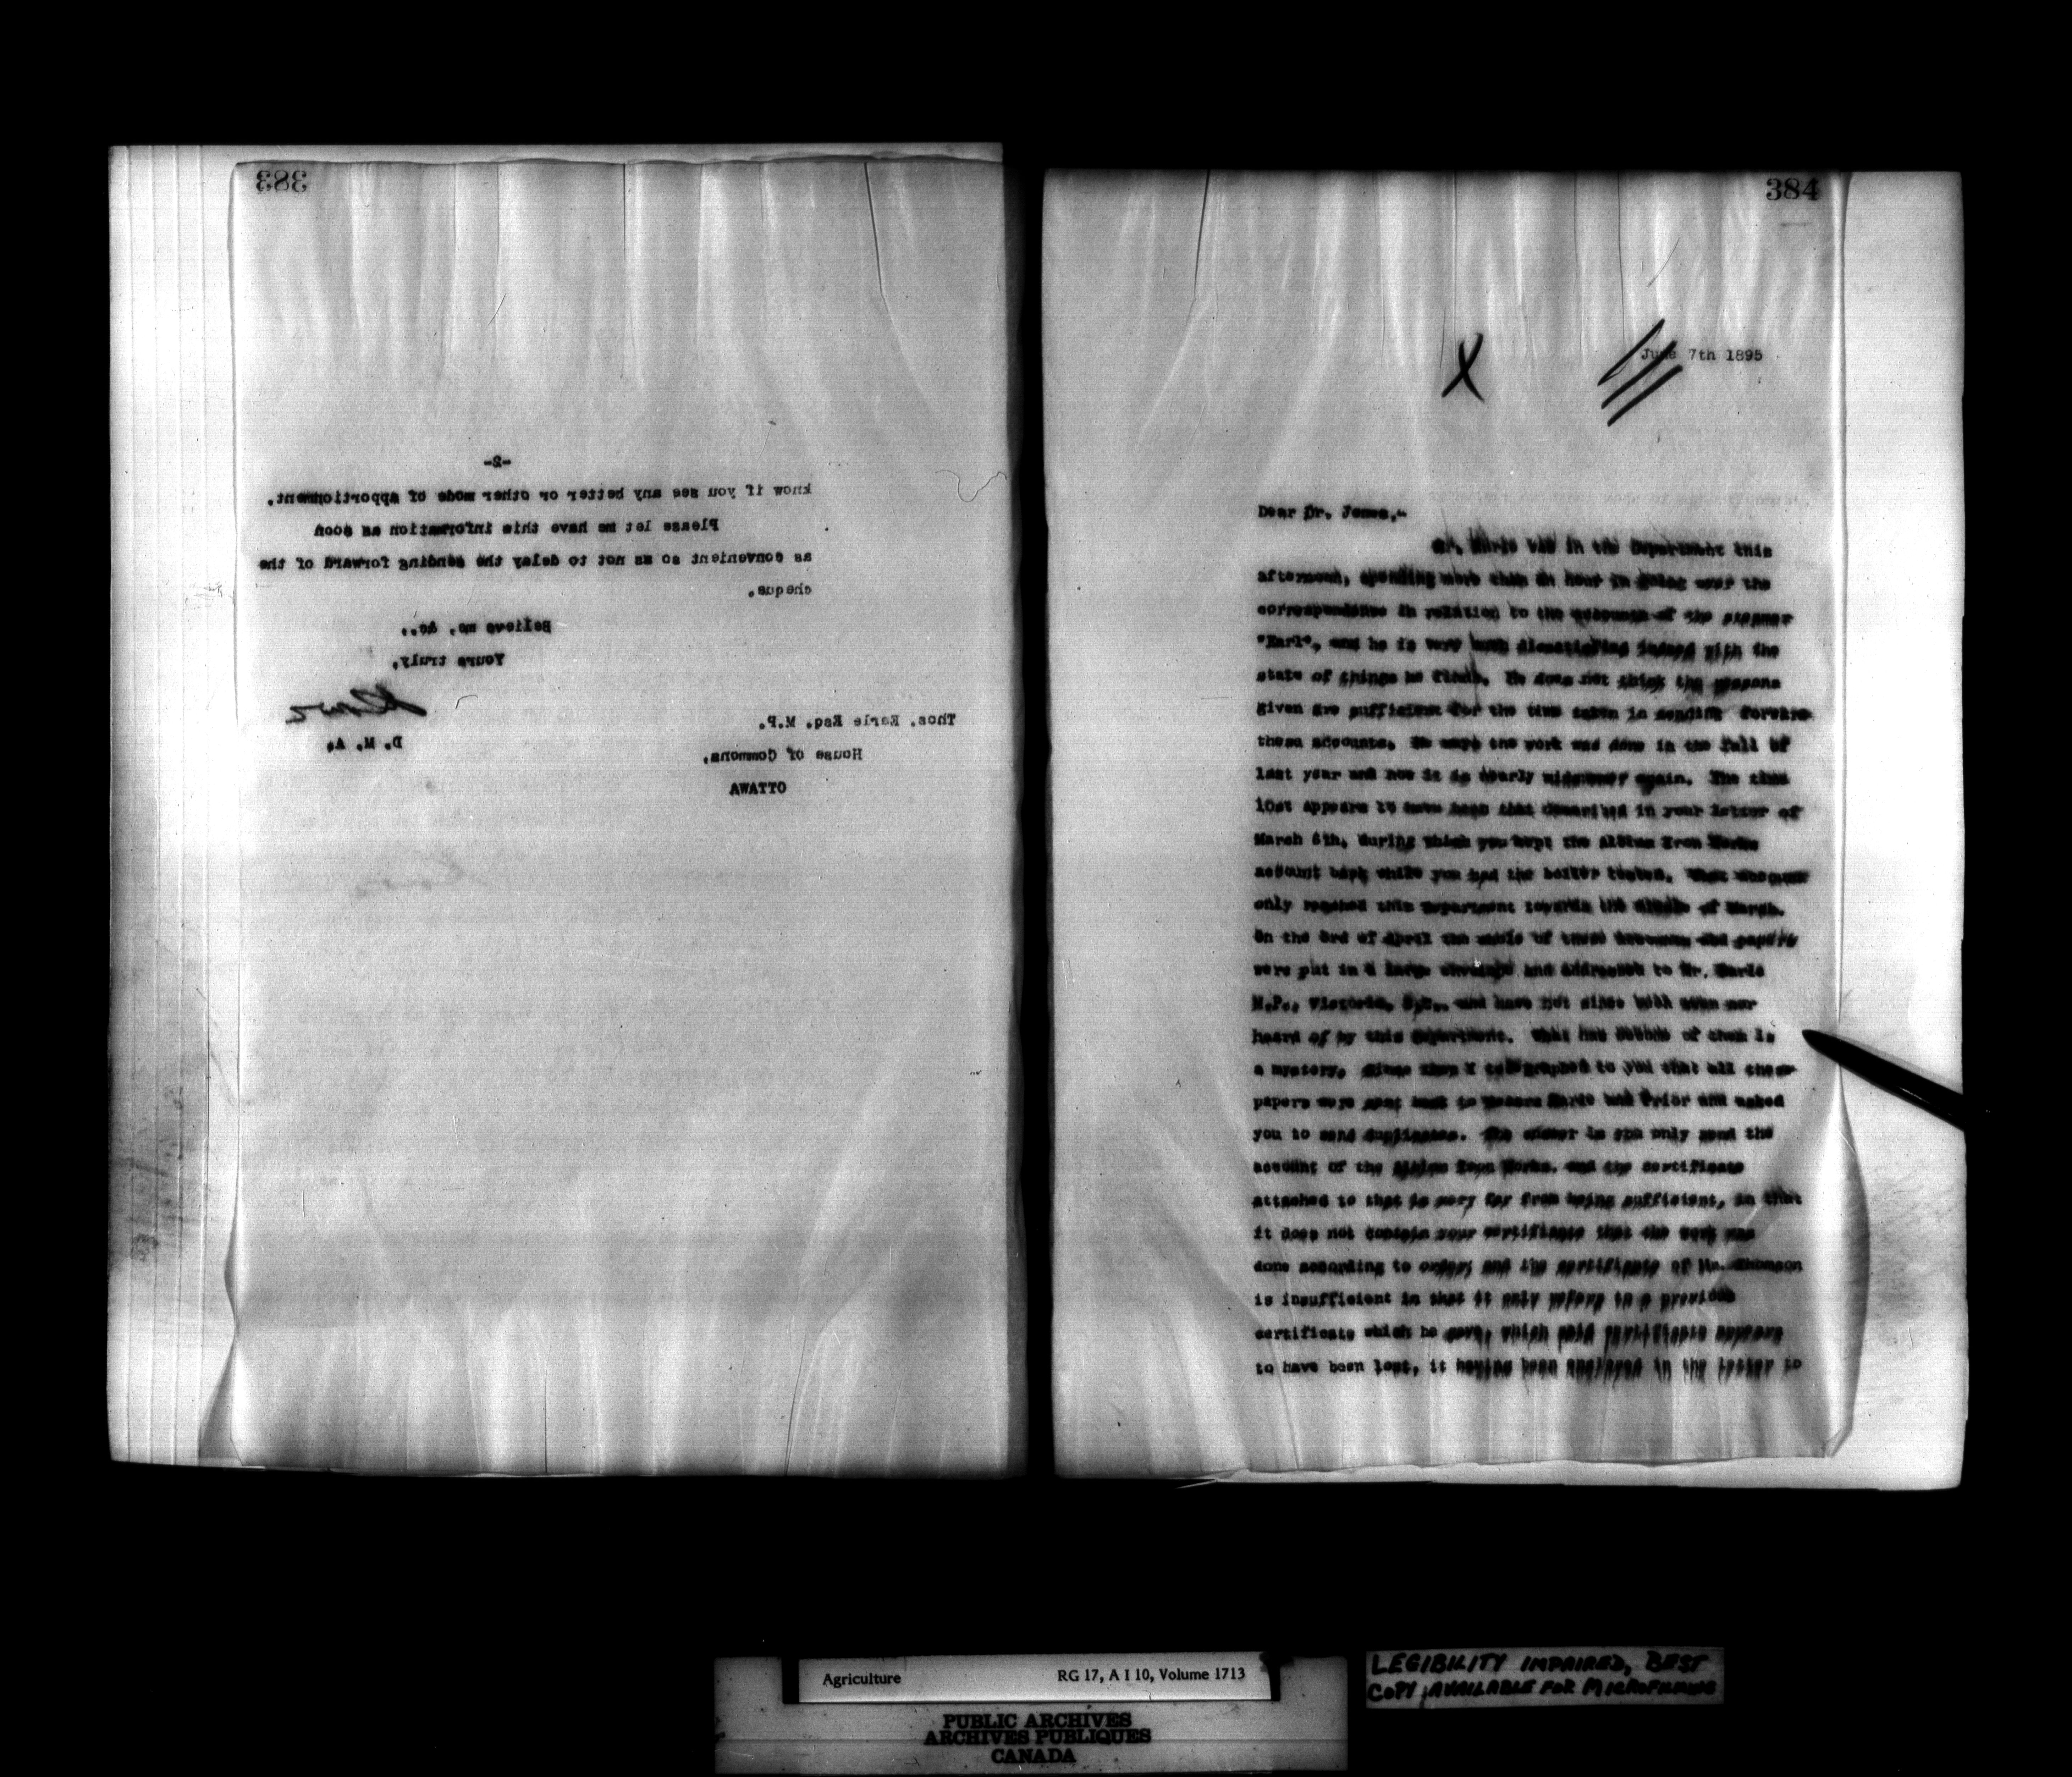 383
-2-
know if you see any better or other mode of apportionment.
Please let me have this information as soon
as convenient so as not to delay the sending forward of the
cheque.
Believe me, &c.,
Yours truly,
D. M. A.
Thos. Earle Esq. M.P.
House of Commons,
OTTAWA
384
June 7th 1895
X
Dear Dr. Jones,-
Mr. Earle was in the Department this
afternoon, spending more than an hour in going over the
correspondence in relation to the accounts of the steamer
"Earl", and he is very much dissatisfied indeed with the
state of things he finds. He does not think the reasons
given are sufficient for the time taken in sending forward
these accounts. He says the work was done in the fall of
last year and now it is nearly midsummer again. The time
lost appears to have been that described in your letter of
March 6th, during which you kept the Albion Iron Works
account back while you had the boiler tested. That account
only reached this Department towards the middle of March.
On the 3rd of April the whole of these accounts and papers
were put in a large envelope and addressed to Mr. Earle
M.P., Victoria, B.C., and have not since been seen nor
heard of by this Department. What has become of them is
a mystery. Since then I telegraphed to you that all these
papers were sent back to Messrs Earle and Prior and asked
you to send duplicates. The answer is you only send the
account of the Albion Iron Works, and the certificate
attached to that is very far from being sufficient, in that
it does not contain your certificate that the work was
done according to order; and the certificate of Mr. Thomson
is insufficient in that it only refers to a previous
certificate which he gave, which said certificate appears
to have been lost, it having been enclosed in the letter to
Agriculture RG 17, A I 10, Volume 1713
PUBLIC ARCHIVES
ARCHIVES PUBLIQUES
CANADA
LEGIBILITY IMPAIRED, BEST
COPY AVAILABLE FOR MICROFILMING